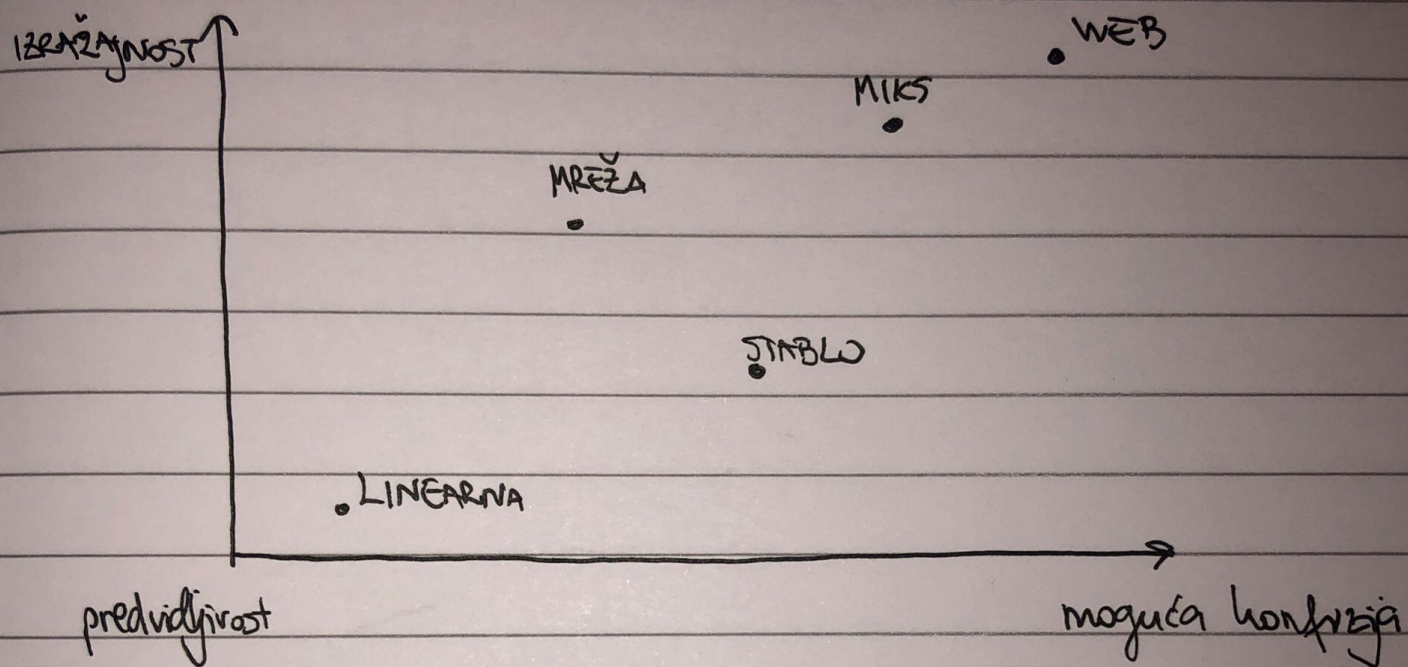 IZRAŽAJNOST
WEB
MIKS
MREŽA
STABLO
LINEARNA
predvidljivost
moguća konfuzija